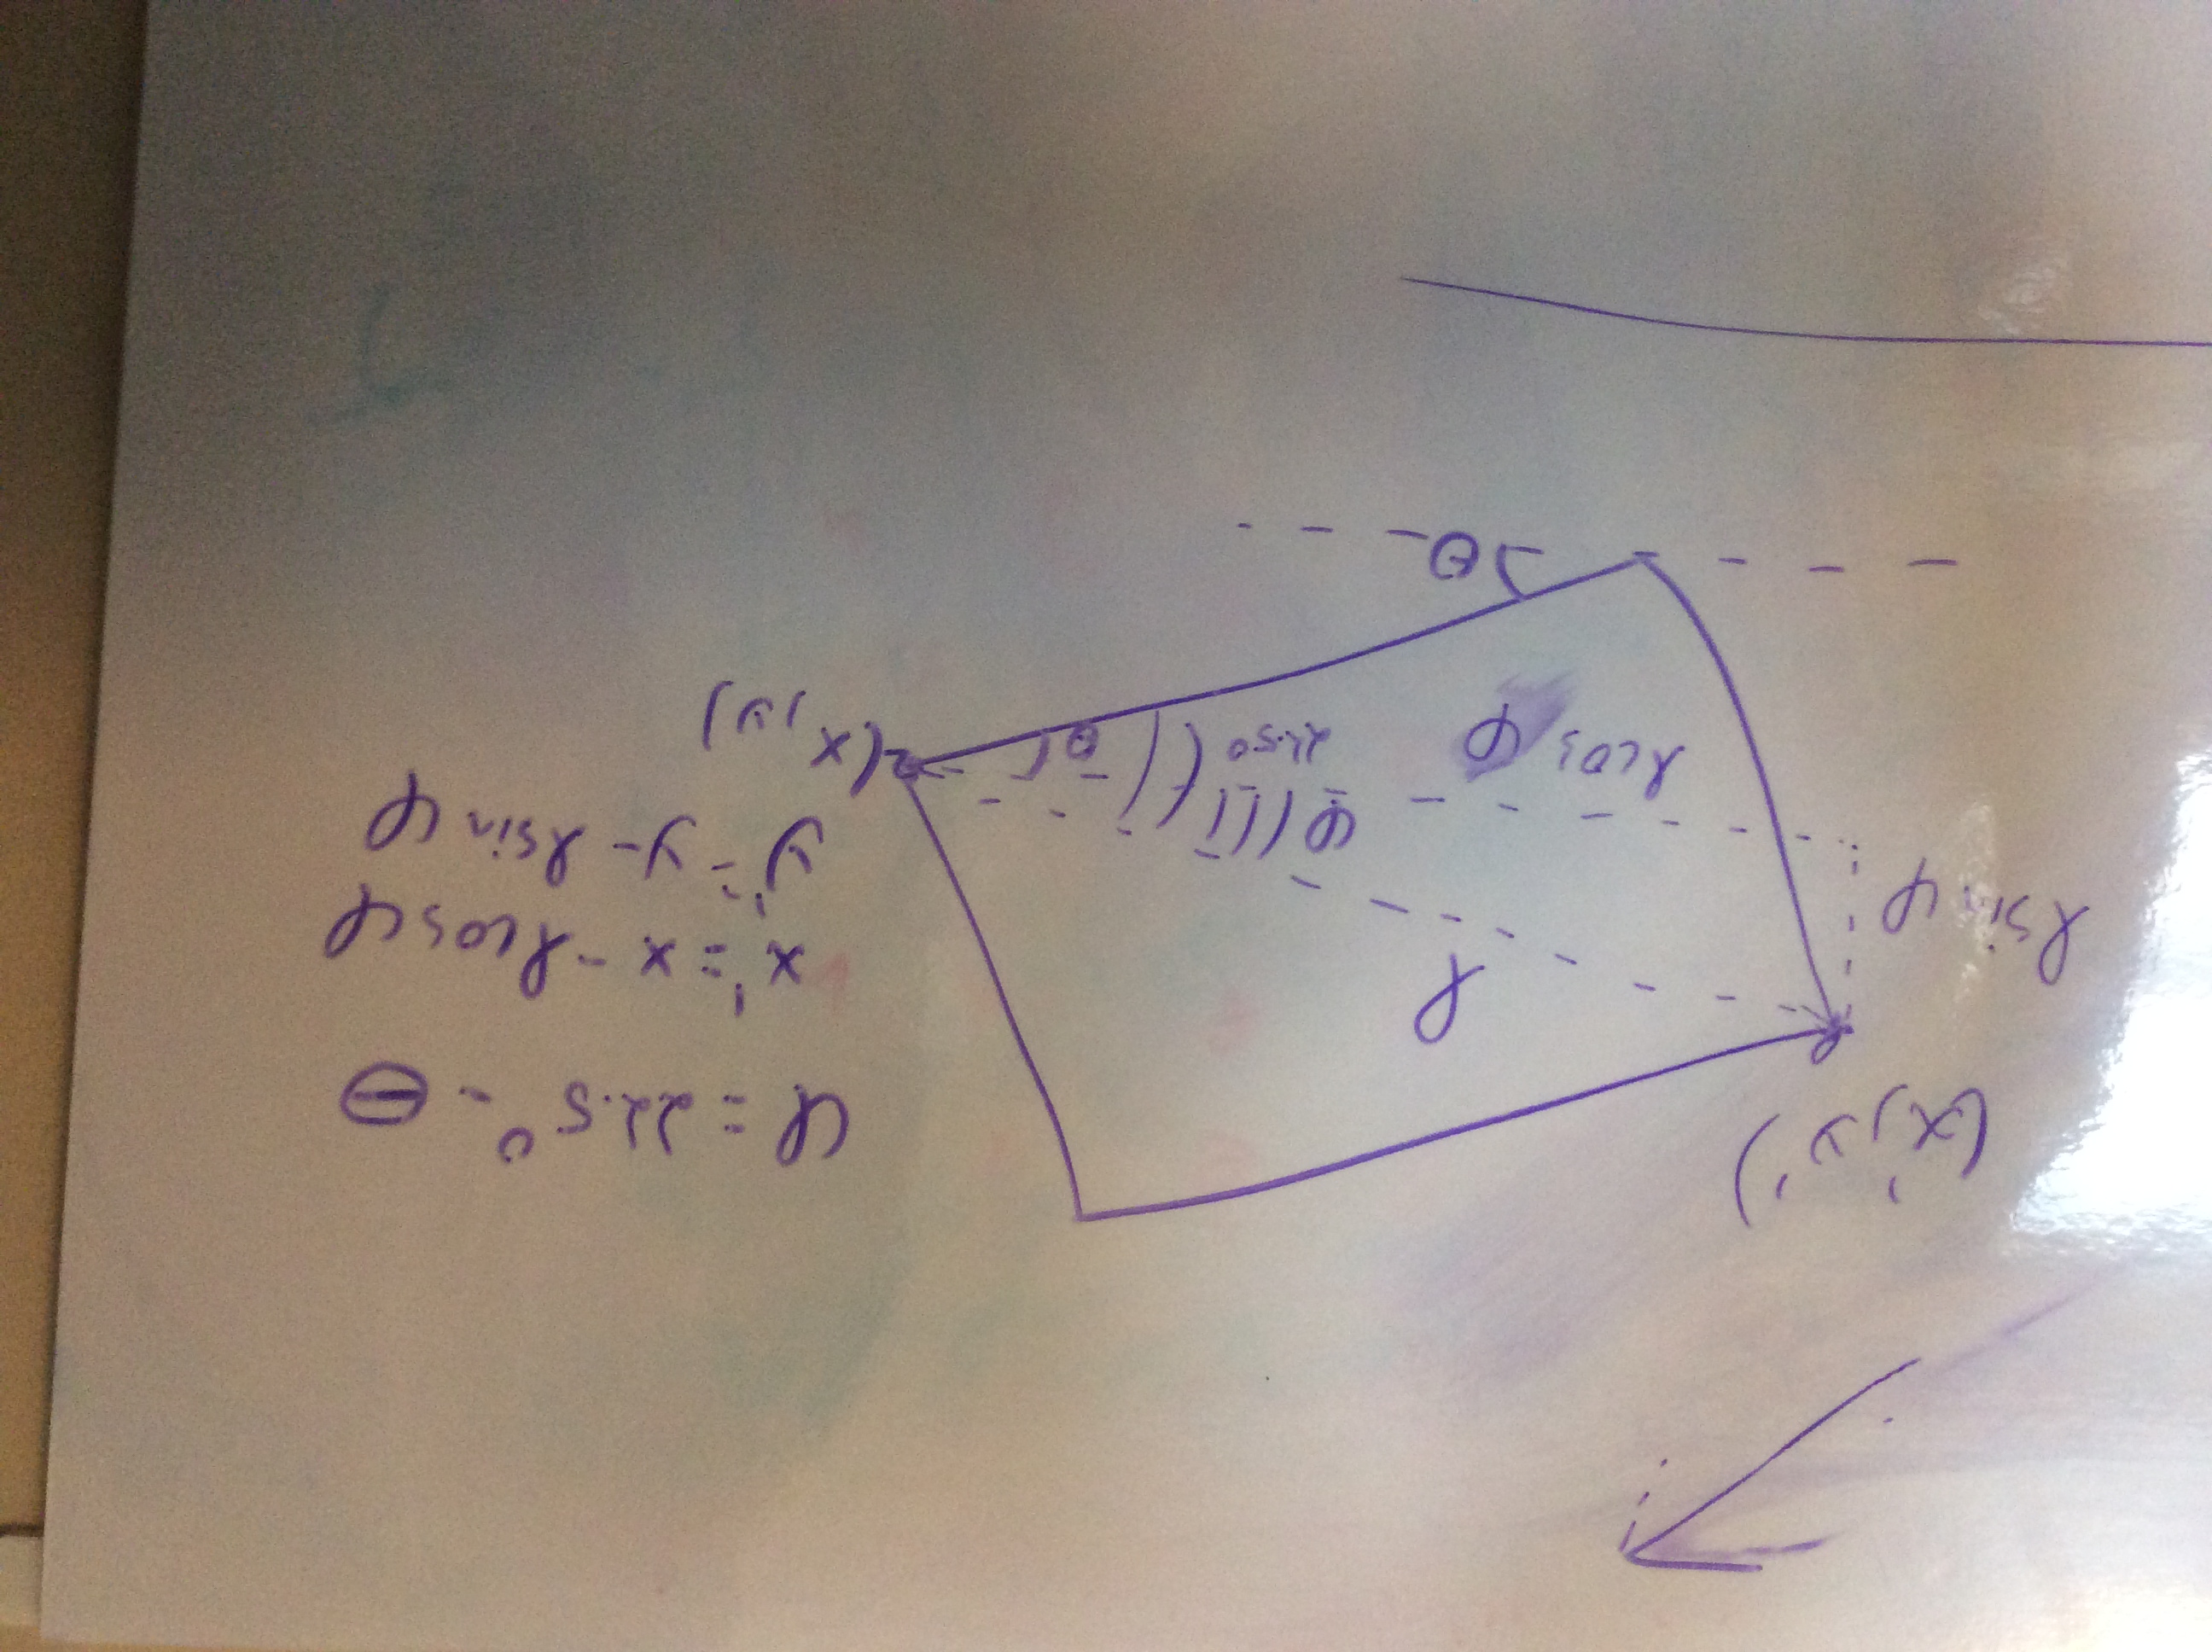 (x', y')
l
l sin φ
φ
l cos φ
22.5°
θ
(x, y)
θ
φ = 22.5° - θ
x' = x - l cos φ
y' = y - l sin φ